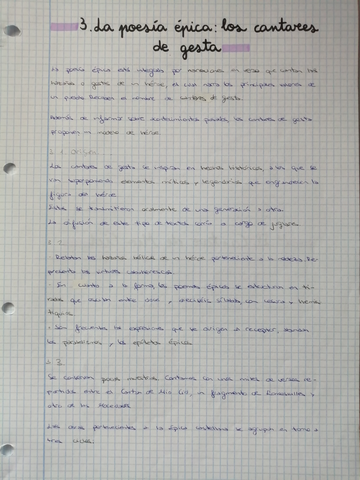 3. La poesía épica: los cantares
de gesta
La poesía épica está integrada por narraciones en verso que cuentan las
hazañas o gestas de un héroe, el cual los principales valores de
un pueblo. Reciben el nombre de cantares de gesta.
Además de informar sobre acontecimientos pasados, los cantares de gesta
proponen un modelo de héroe.
Los cantares de gesta se inspiran en hechos históricos, a los que se
van superponiendo elementos míticos y legendarios que engrandecen la
figura del héroe.
Estos se transmitieron oralmente de una generación a otra.
La difusión de este tipo de textos corría a cargo de juglares.
- Relatan las hazañas bélicas de un héroe perteneciente a la nobleza. Re-
presenta las virtudes caballerescas.
- En cuanto a la forma, los poemas épicos se estructuran en ti-
radas que oscilan entre once y dieciséis sílabas, con cesura y
- Son frecuentes las expresiones que se dirigen al receptor,
las y los epítetos épicos.
Se conservan pocas muestras. Contamos con una serie de versos
sobre el Cantar de Mio Cid, un fragmento de Roncesvalles y
otro de las Mocedades.
Las obras pertenecientes a la épica castellana se agrupan en torno a
tres ciclos.